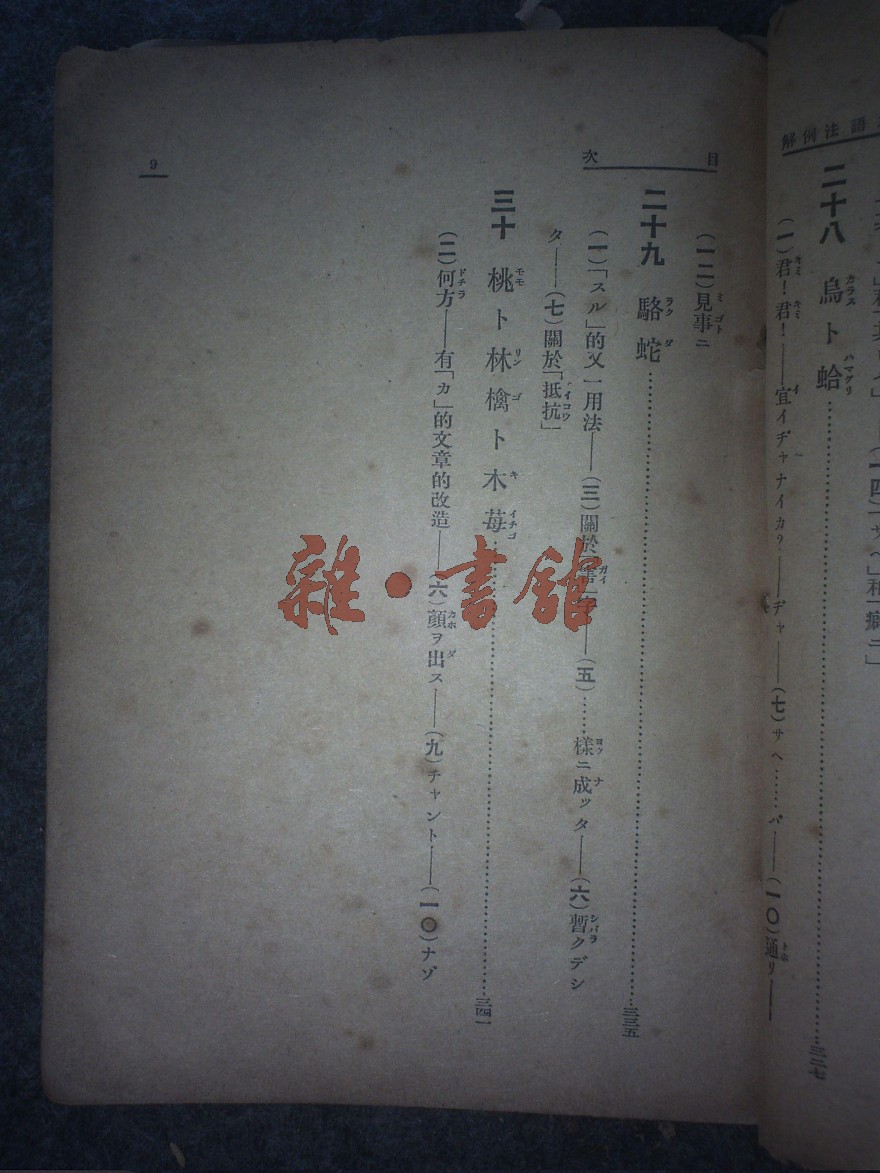 解例法語
二十八 烏ト蛤……三二七
(一)君!君!——宜イヂャナイカ?——ヂャ——(七)サヘ……バ——(一〇)通リ——
目次
(一二)見事ニ
二十九 駱蛇……三三五
(一)「スル」的又一用法——(三)關於「害」字——(五)……樣ニ成ッタ——(六)暫クデシ
タ——(七)關於「抵抗」
三十 桃ト林檎ト木苺……三四一
(二)何方——有「カ」的文章的改造——(六)顔ヲ出ス——(九)チャント——(一〇)ナゾ
9
雜·書館